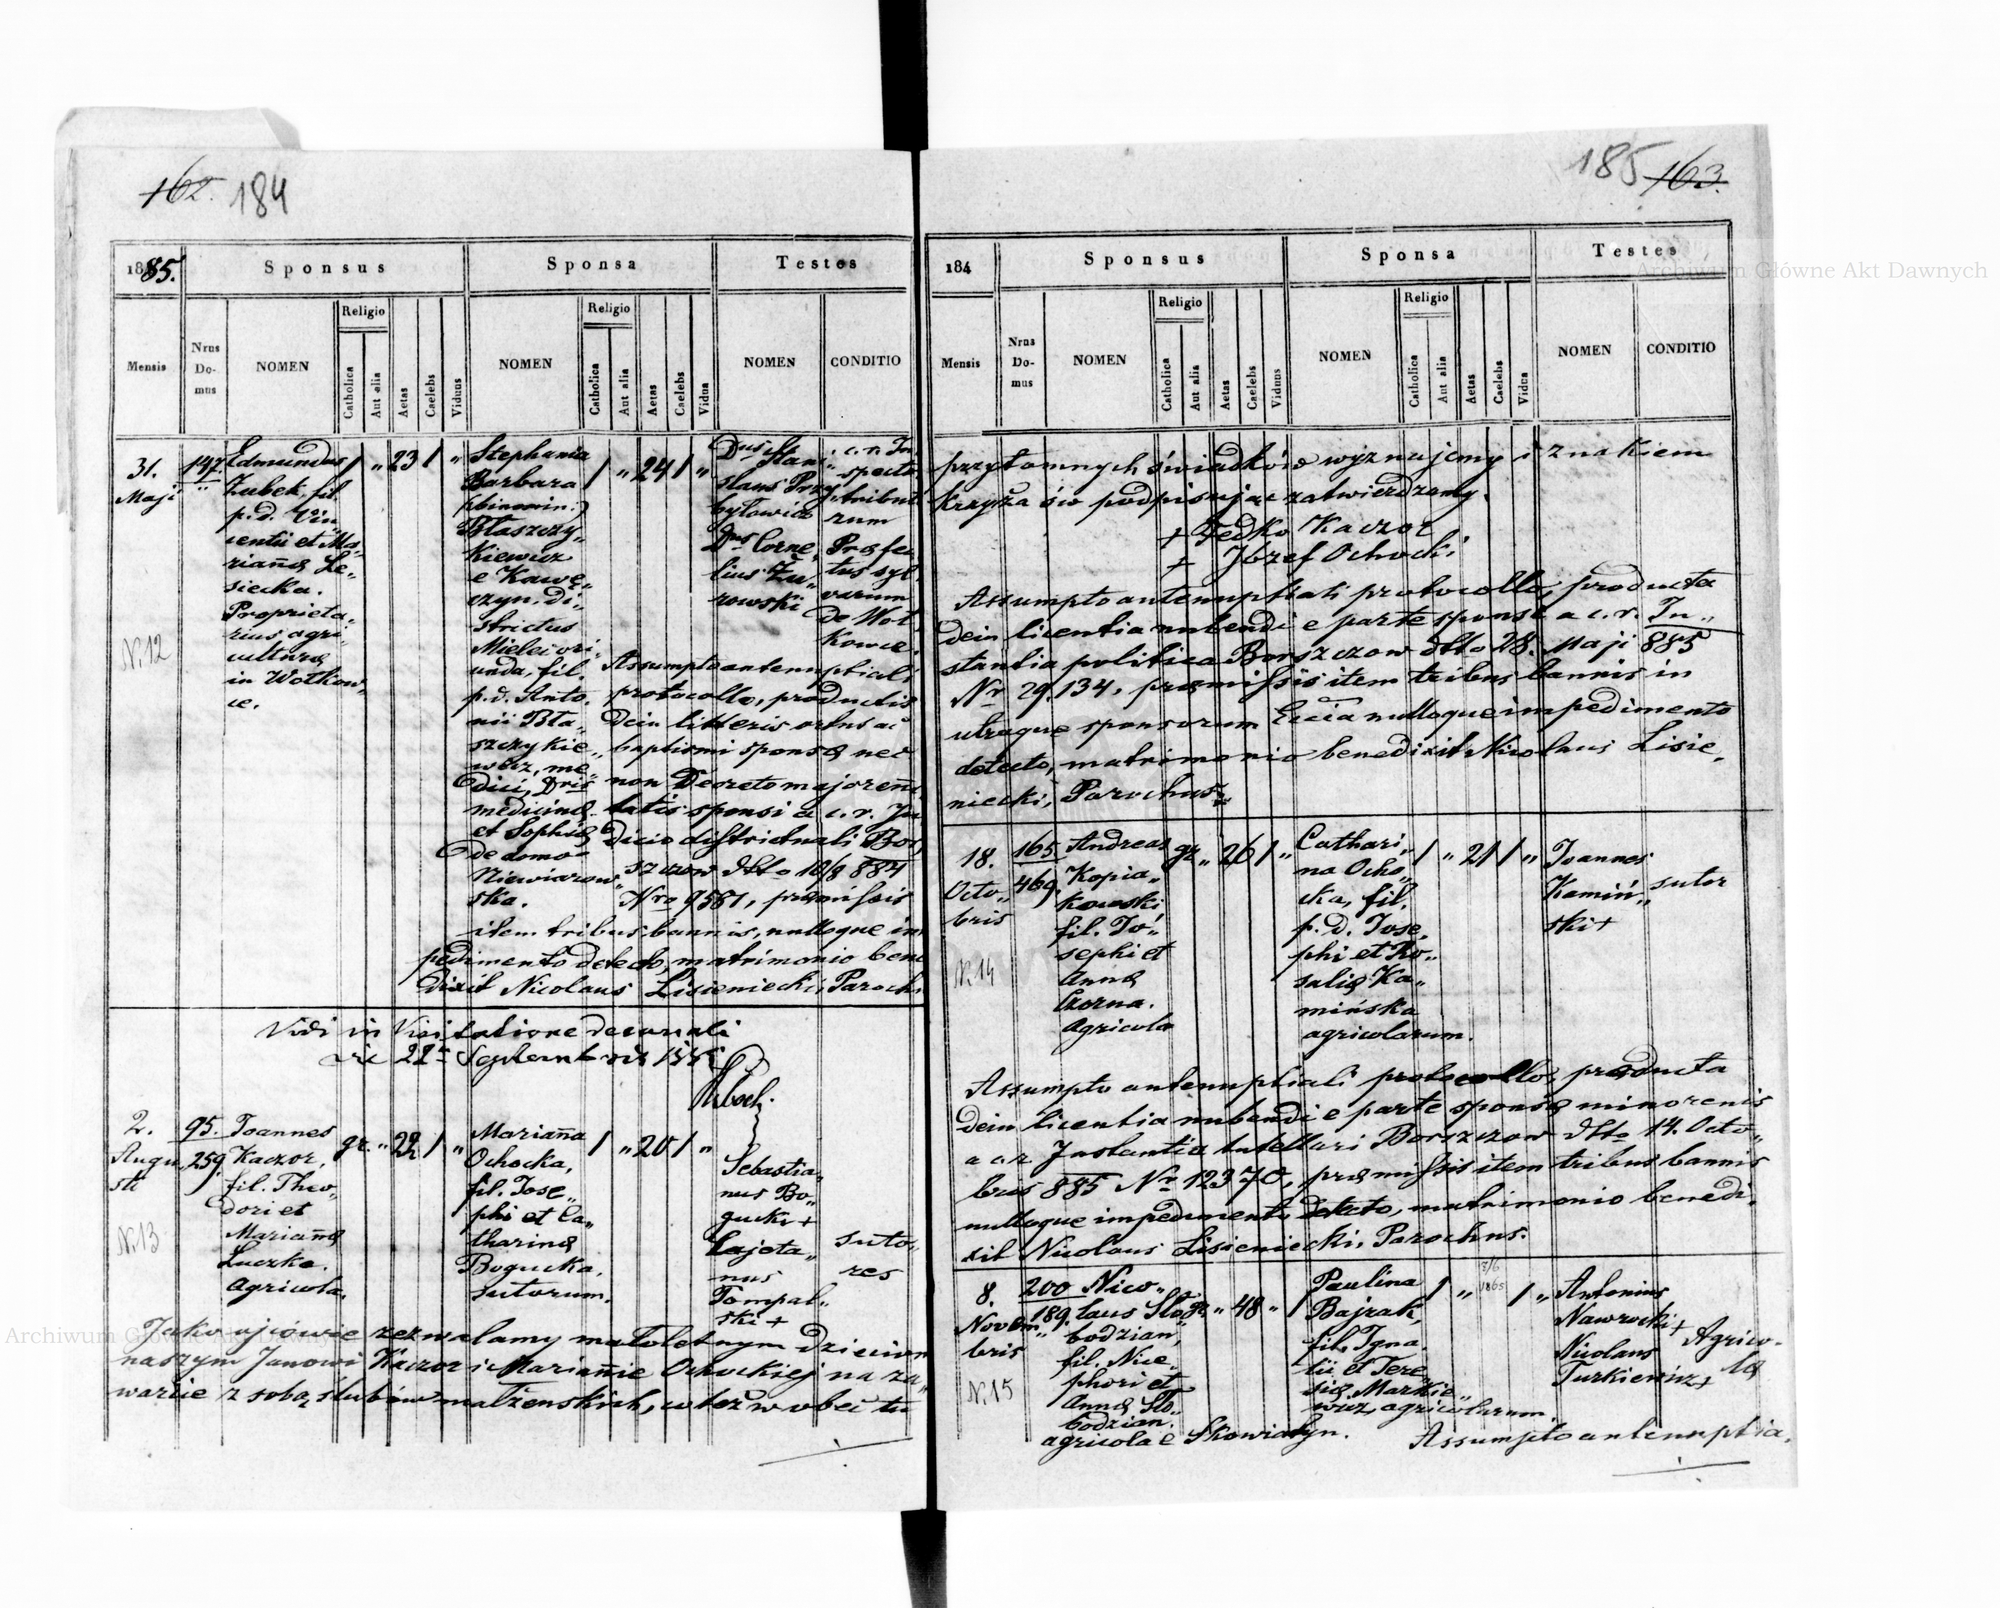 162. 184
1885.
Sponsus
Sponsa
Testes
Mensis
Nrus Do-mus
NOMEN
Religio
Catholica
Aut alia
Aetas
Caelebs
Viduus
NOMEN
Religio
Catholica
Aut alia
Aetas
Caelebs
Vidua
NOMEN
CONDITIO
31.
Maji
N. 12
147.
Edmundus
Zubek, fil.
p. d. Vin„
centii et Ma„
rianæ Le„
siecka.
Proprieta„
rius agri„
culturæ
in Wołkow„
ce.
1 „ 23 1 „
Stephania
Barbara
(binomin.)
Błaszczy„
kiewicz
e Kawę„
czyn, di„
strictus
Mielec ori„
unda, fil.
p. d. Anto„
nii Bła„
szczykie„
wicz, me„
dici, Dris
medicinæ
et Sophiæ
de domo
Niewiarow„
ska.
1 „ 24 1 „
Dnus Stani„
slaus Przy„
byłowicz
Dnus Corne„
lius Żu„
rowski
c. r. In„
specto„
tributo
rum
Præfec„
tus syl„
varum
de Woł„
kowce.
Assumpto antenuptiali
protocollo, productis
dein litteris ortus ac
baptismi sponsæ nec
non Decreto majoren„
tatis sponsi a c. r. Ju
dicio districtuali Bor
szczow dtto 10/8 884
Nro 9561, præmissis
item tribus bannis, nulloque im
pedimento detecto, matrimonio bene
dixit Nicolaus Lisieniecki, Paroch
Vidi in Visitatione decanali
die 22ª Septembris 1885
2.
Augu„
sti
N. 13
95.
259.
Joannes
Kaczor,
fil. Theo„
dori et
Marianæ
Luczka.
Agricola.
gr. „ 22 1 „
Marianna
Ochocka,
fil. Jose„
phi et Ca„
tharinæ
Bogucka.
Sutorum.
1 „ 20 1 „
Sebastia„
nus Bo„
gucki +
Cajeta„
nus
Tompal„
ski +
suto„
res
Jako ojcowie zezwalamy małoletnym dzieciom
naszym Janowi Kaczor i Mariannie Ochockiej na za„
warcie z sobą ślubów małżenskich, co też w obec tu
185 163.
184
Sponsus
Sponsa
Testes
Mensis
Nrus Do-mus
NOMEN
Religio
Catholica
Aut alia
Aetas
Caelebs
Viduus
NOMEN
Religio
Catholica
Aut alia
Aetas
Caelebs
Vidua
NOMEN
CONDITIO
przytomnych świadków wyznajemy i znakiem
krzyża św podpisując zatwierdzamy.
+ Fedko Kaczor
+ Józef Ochocki
Assumpto antenuptiali protocollo, producta
dein licentia nubendi e parte sponsæ a c. r. In„
stantia politica Borszczow dtto 28. Maji 885
Nr 29.134, præmissis item tribus bannis in
utraque sponsorum Eccia nulloque impedimento
detecto, matrimonio benedixit Nicolaus Lisie„
niecki, Parochus.
18.
Octo„
bris
N. 14
165.
469.
Andreas
Kopia„
kowski
fil. Jo„
sephi et
Annæ
Czorna.
Agricola
gr „ 26 1 „
Cathari„
na Ocho„
cka, fil.
p. d. Jose„
phi et Ro„
saliæ Ka„
mińska
agricolarum.
1 „ 21 1 „
Joannes
Kamiń„
ski +
sutor
Assumpto antenuptiali protocollo, producta
dein licentia nubendi e parte sponsæ minorenis
a c. r. Instantia tutellari Borszczow dtto 14. Octo„
bris 885 Nr 12370, præmissis item tribus bannis
nulloque impedimento detecto, matrimonio benedi„
xit Nicolaus Lisieniecki, Parochus.
8.
Novem„
bris
N. 15
200
189.
Nico„
laus Sło„
bodzian,
fil. Nice„
phori et
Annæ Sło„
bodzian.
agricola e Skowiatyn.
gr. „ 48 „ 1
Paulina
Bajrak,
fil. Igna„
tii et Tere„
siæ Markie„
wicz, agricolarum.
1 „ 1865 1 „
Antonius
Nawrocki +
Nicolaus
Turkiewicz +
Agrico„
læ
Assumpto antenuptia„
Archiwum Główne Akt Dawnych
Archiwum Główne Akt Dawnych